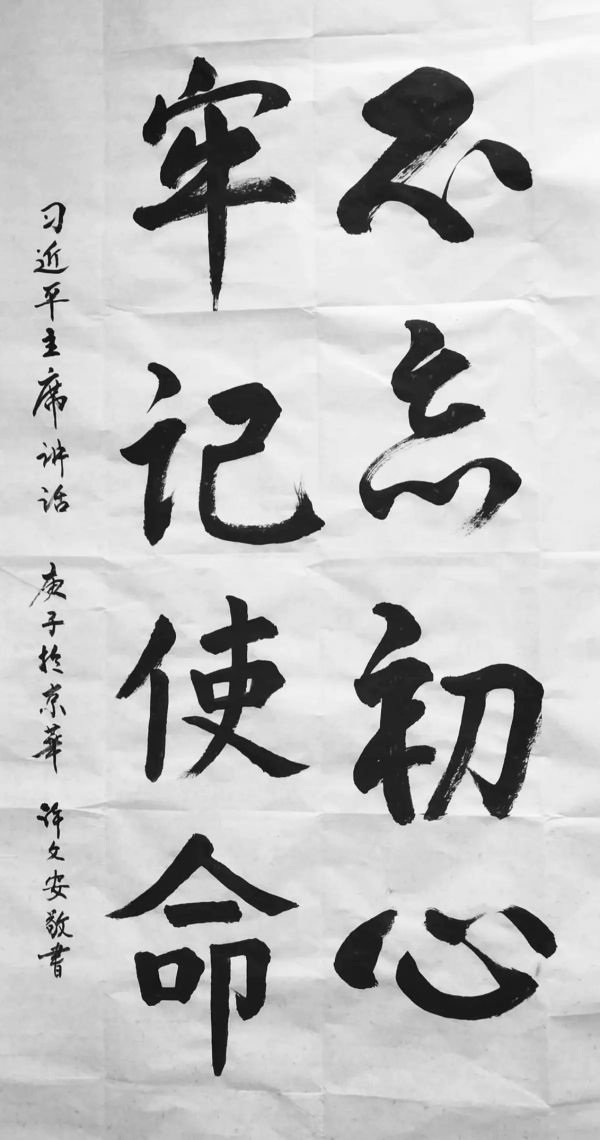 不忘初心
牢记使命
习近平主席讲话 庚子于京华 许文安敬书